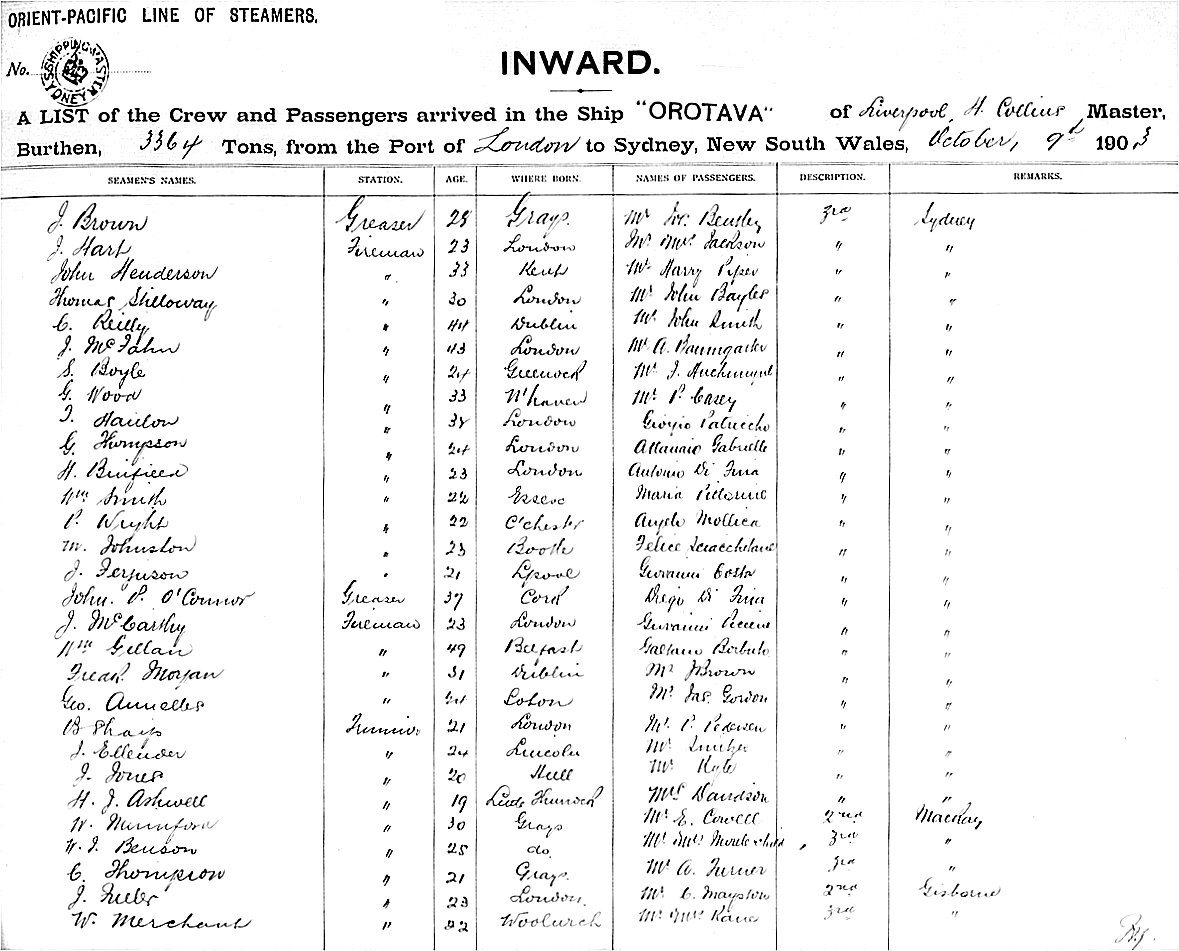 ORIENT-PACIFIC LINE OF STEAMERS.
No.
SHIPPING MASTER SYDNEY
INWARD.
A LIST of the Crew and Passengers arrived in the Ship "OROTAVA" of Liverpool, H. Collins, Master,
Burthen, 3364 Tons, from the Port of London to Sydney, New South Wales, October, 9th 1903
SEAMEN'S NAMES. STATION. AGE. WHERE BORN. NAMES OF PASSENGERS. DESCRIPTION. REMARKS.
J. Brown Greaser 28 Grays. Mr Jos. Bentley 3rd Sydney
J. Hart Fireman 23 London Mr Mrs Jackson " "
John Henderson " 33 Kent Mr Harry Piper " "
Thomas Stilloway " 30 London Mr John Bayles " "
C. Reilly " 44 Dublin Mr John Smith " "
J. McFahn " 43 London Mr A. Baumgarten " "
S. Boyle " 24 Greenock Mr J. " "
G. Wood " 33 N'haven Mr P. Casey " "
T. Hanlon " 38 London Giorgio " "
G. Thompson " 24 London Gabrielle " "
H. Binfield " 23 London Antonio Di Fina " "
Wm Smith " 22 Essex Maria " "
P. Wright " 22 C'chester Angelo Mollica " "
M. Johnston " 23 Bootle Felice " "
J. Ferguson " 21 Lpool Giovanni Costa " "
John. P. O'Connor Greaser 37 Cork Diego Di Fina " "
J. McCarthy Fireman 23 London Giovanni " "
Wm Gillan " 49 Belfast Gaetano " "
Fredk Morgan " 31 Dublin Mr J Brown " "
Geo. " Mr Jas. Gordon " "
B Sharp Trimmer 21 London Mr P. Pedersen " "
J. Ellender " 24 Lincoln Mr " "
J. Jones " 20 Hull Mr Kyle " "
H. J. Ashwell " 19 Little Thurrock Mrs Davidson " "
W. Mumford " 30 Grays Mr E. Cowell 2nd Mackay
W. J. Benson " 25 do. Mr Mrs & child, 3rd "
C. Thompson " 21 Grays. Mr A. Turner 3rd "
J. Fuller " 23 London. Mr C. Mayston 2nd Gisborne
W. Merchant " 22 Woolwich Mr Mrs Kane 3rd "